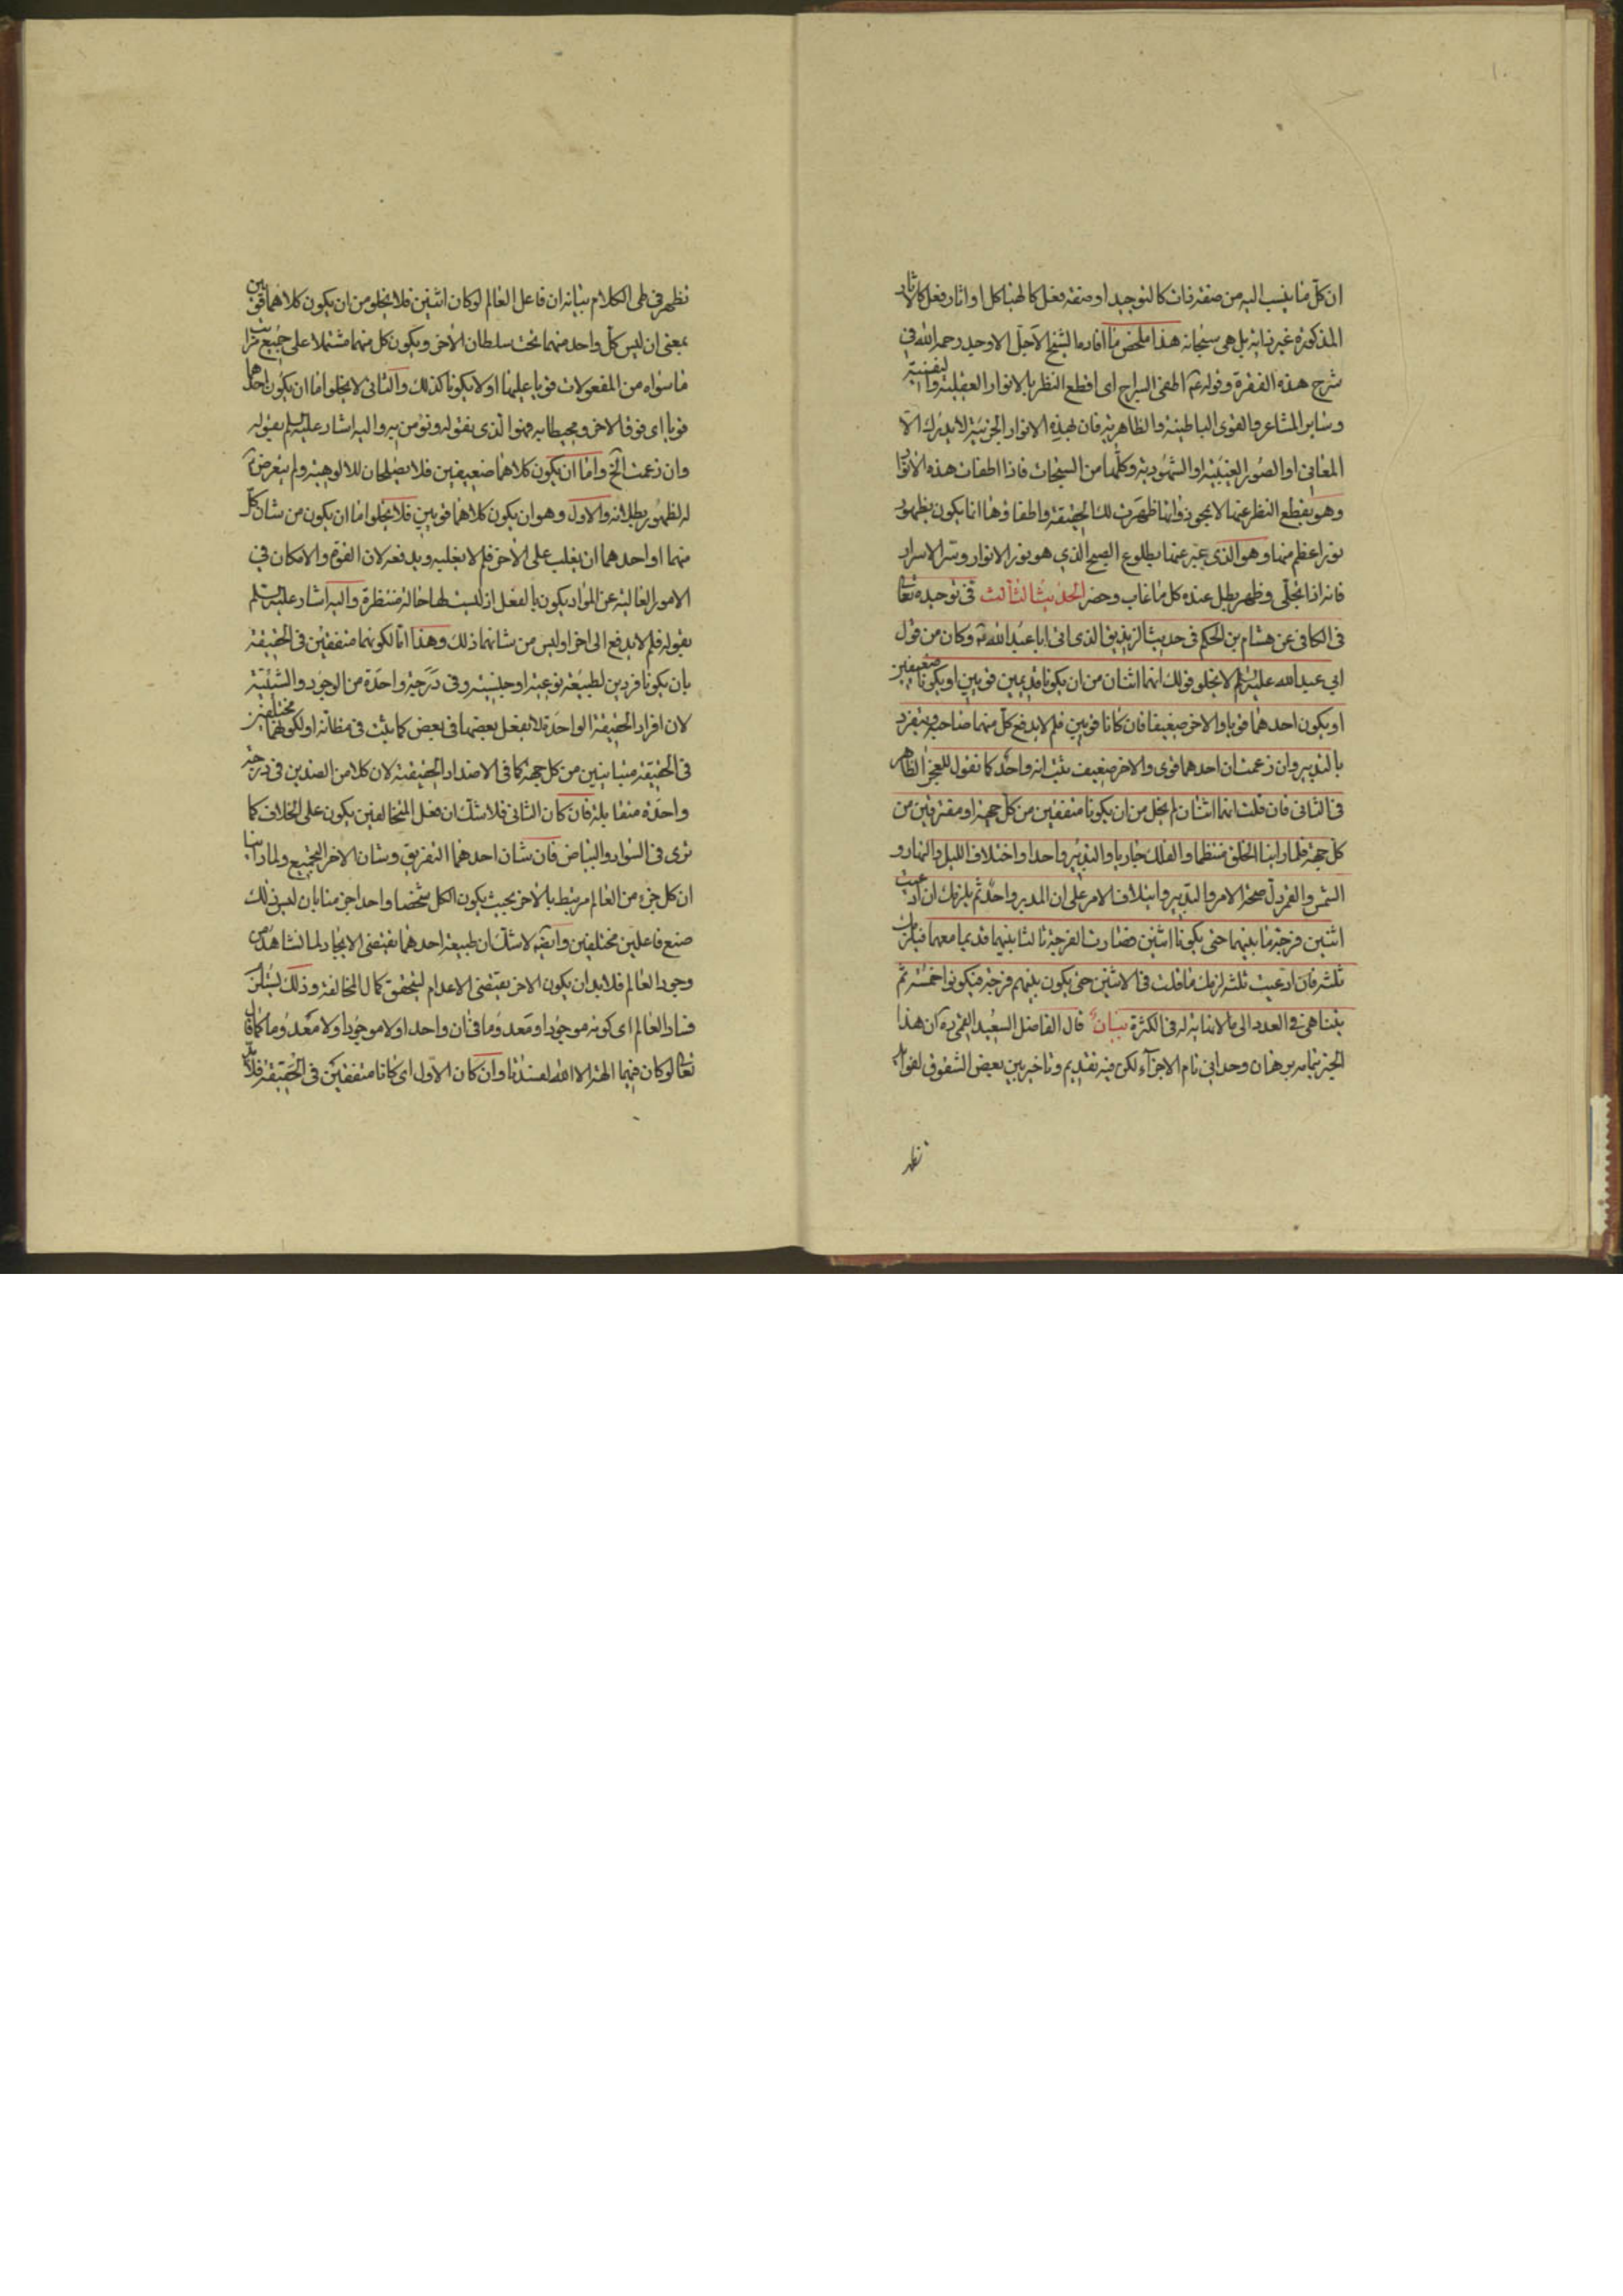 ان كل ما ينسب اليه من صفة ذات كالتوحيد او صفة فعل كالهياكل او اثار فعل كالاثار
المذكورة غير ذاته بل هى سبحانه هذا ملخص ما افاده الشيخ الاجل الاوحد رحمه الله في
شرح هذه الفقرة وقوله ع اطفئ السراج اى اقطع النظر بالانوار العقلية والنفسية
وساير المشاعر والقوى الباطنية والظاهرية فان لهذه الانوار الجزئية لا يدرك الا
المعانى او الصور الغيبية او الشهودية وكلها من السبحات فاذا اطفات هذه الانوار
وهو بقطع النظر عنها لا بجحودها ظهرت لك الحقيقة واطفاؤها انما يكون بظهور
نور اعظم منها وهو الذى عبر عنها بطلوع الصبح الذي هو نور الانوار وسر الاسرار
فانه اذا تجلى وظهر بطل عنده كل ما غاب وحضر الحديث الثالث فى توحيده تعالى
فى الكافى عن هشام بن الحكم فى حديث الزنديق الذى اتى ابا عبد الله ع وكان من قول
ابي عبد الله عليه السلم لا يخلو قولك انهما اثنان من ان يكونا قديمين قويين او يكونا ضعيفين
او يكون احدهما قويا والاخر ضعيفا فان كانا قويين فلم لا يدفع كل منهما صاحبه ويتفرد
بالتدبير وان زعمت ان احدهما قوى والاخر ضعيف ثبت انه واحد كما نقول للعجز الظاهر
فى الثانى فان قلت انهما اثنان لم يخل من ان يكونا متفقين من كل جهة او مفترقين من
كل جهة فلما راينا الخلق منتظما والفلك جاريا والتدبير واحدا واختلاف الليل والنهار و
الشمس والقمر دل صحة الامر والتدبير وايتلاف الامر على ان المدبر واحد ثم يلزمك ان ادعيت
اثنين فرجة ما بينهما حتى يكونا اثنين فصارت الفرجة ثالثا بينهما قديما معهما فيلزمك
ثلثة فان ادعيت ثلثة لزمك ما قلت فى الاثنين حتى يكون بينهم فرجة فيكونوا خمسة ثم
يتناهى فى العدد الى ما لا نهاية له فى الكثرة بيان قال الفاضل السعيد القمى ره ان هذا
الخبر بتمامه برهان وحدانى تام الاجزاء لكن فيه تقديم وتاخير بين بعض الشقوق لفوايد
تظهر
تظهر فى طى الكلام بيانه ان فاعل العالم لو كان اثنين فلا يخلو من ان يكون كلاهما قويين
بمعنى ان ليس كل واحد منهما تحت سلطان الاخر ويكون كل منهما مشتملا على جميع مراتب
ما سواه من المفعولات قويا عليها او لا يكونا كذلك والثانى لا يخلو اما ان يكون احدهما
قويا اى فوق الاخر ومحيطا به فهو الذى نقوله ونؤمن به واليه اشار عليه السلم بقوله
وان زعمت الخ واما ان يكون كلاهما ضعيفين فلا يصلحان للالوهية ولم يتعرض ع
له لظهور بطلانه والاول وهو ان يكون كلاهما قويين فلا يخلوا اما ان يكون من شان كل
منهما او احدهما ان يغلب على الاخر فلم لا يغلبه ويدفعه لان القوة والامكان في
الامور العالية عن المواد يكون بالفعل اذ ليست لها حالة منتظرة واليه اشار عليه السلم
بقوله فلم لا يدفع الى اخر او ليس من شانهما ذلك وهذا اما لكونهما متفقين فى الحقيقة
بان يكونا فردين لطبيعة نوعية او جنسية وفى درجة واحدة من الوجود والشيئية
لان افراد الحقيقة الواحدة لا يفعل بعضها فى بعض كما يثبت فى مظانه او لكونهما مختلفين
فى الحقيقة متباينين من كل جهة كما فى الاضداد الحقيقية لان كلا من الضدين فى درجة
واحدة متقابلة فان كان الثانى فلا شك ان فعل المتخالفين يكون على الخلاف كما
نرى فى السواد والبياض فان شان احدهما التفريق وشان الاخر التجميع ولما راينا
ان كل جزء من العالم مرتبط بالاخر بحيث يكون الكل شخصا واحدا جزمنا بان ليس ذلك
صنع فاعلين مختلفين وايضا لا شك ان طبيعة احدهما تقتضى الايجاد لما نشاهد من
وجود العالم فلا بد ان يكون الاخر يقتضى الاعدام ليتحقق كمال المخالفة وذلك يستلزم
فساد العالم اى كونه موجودا ومعدوما فى ان واحد او لا موجودا ولا معدوما كما قال
تعالى لو كان فيهما الهة الا الله لفسدتا وان كان الاول اى كانا متفقين فى الحقيقة فلا بد